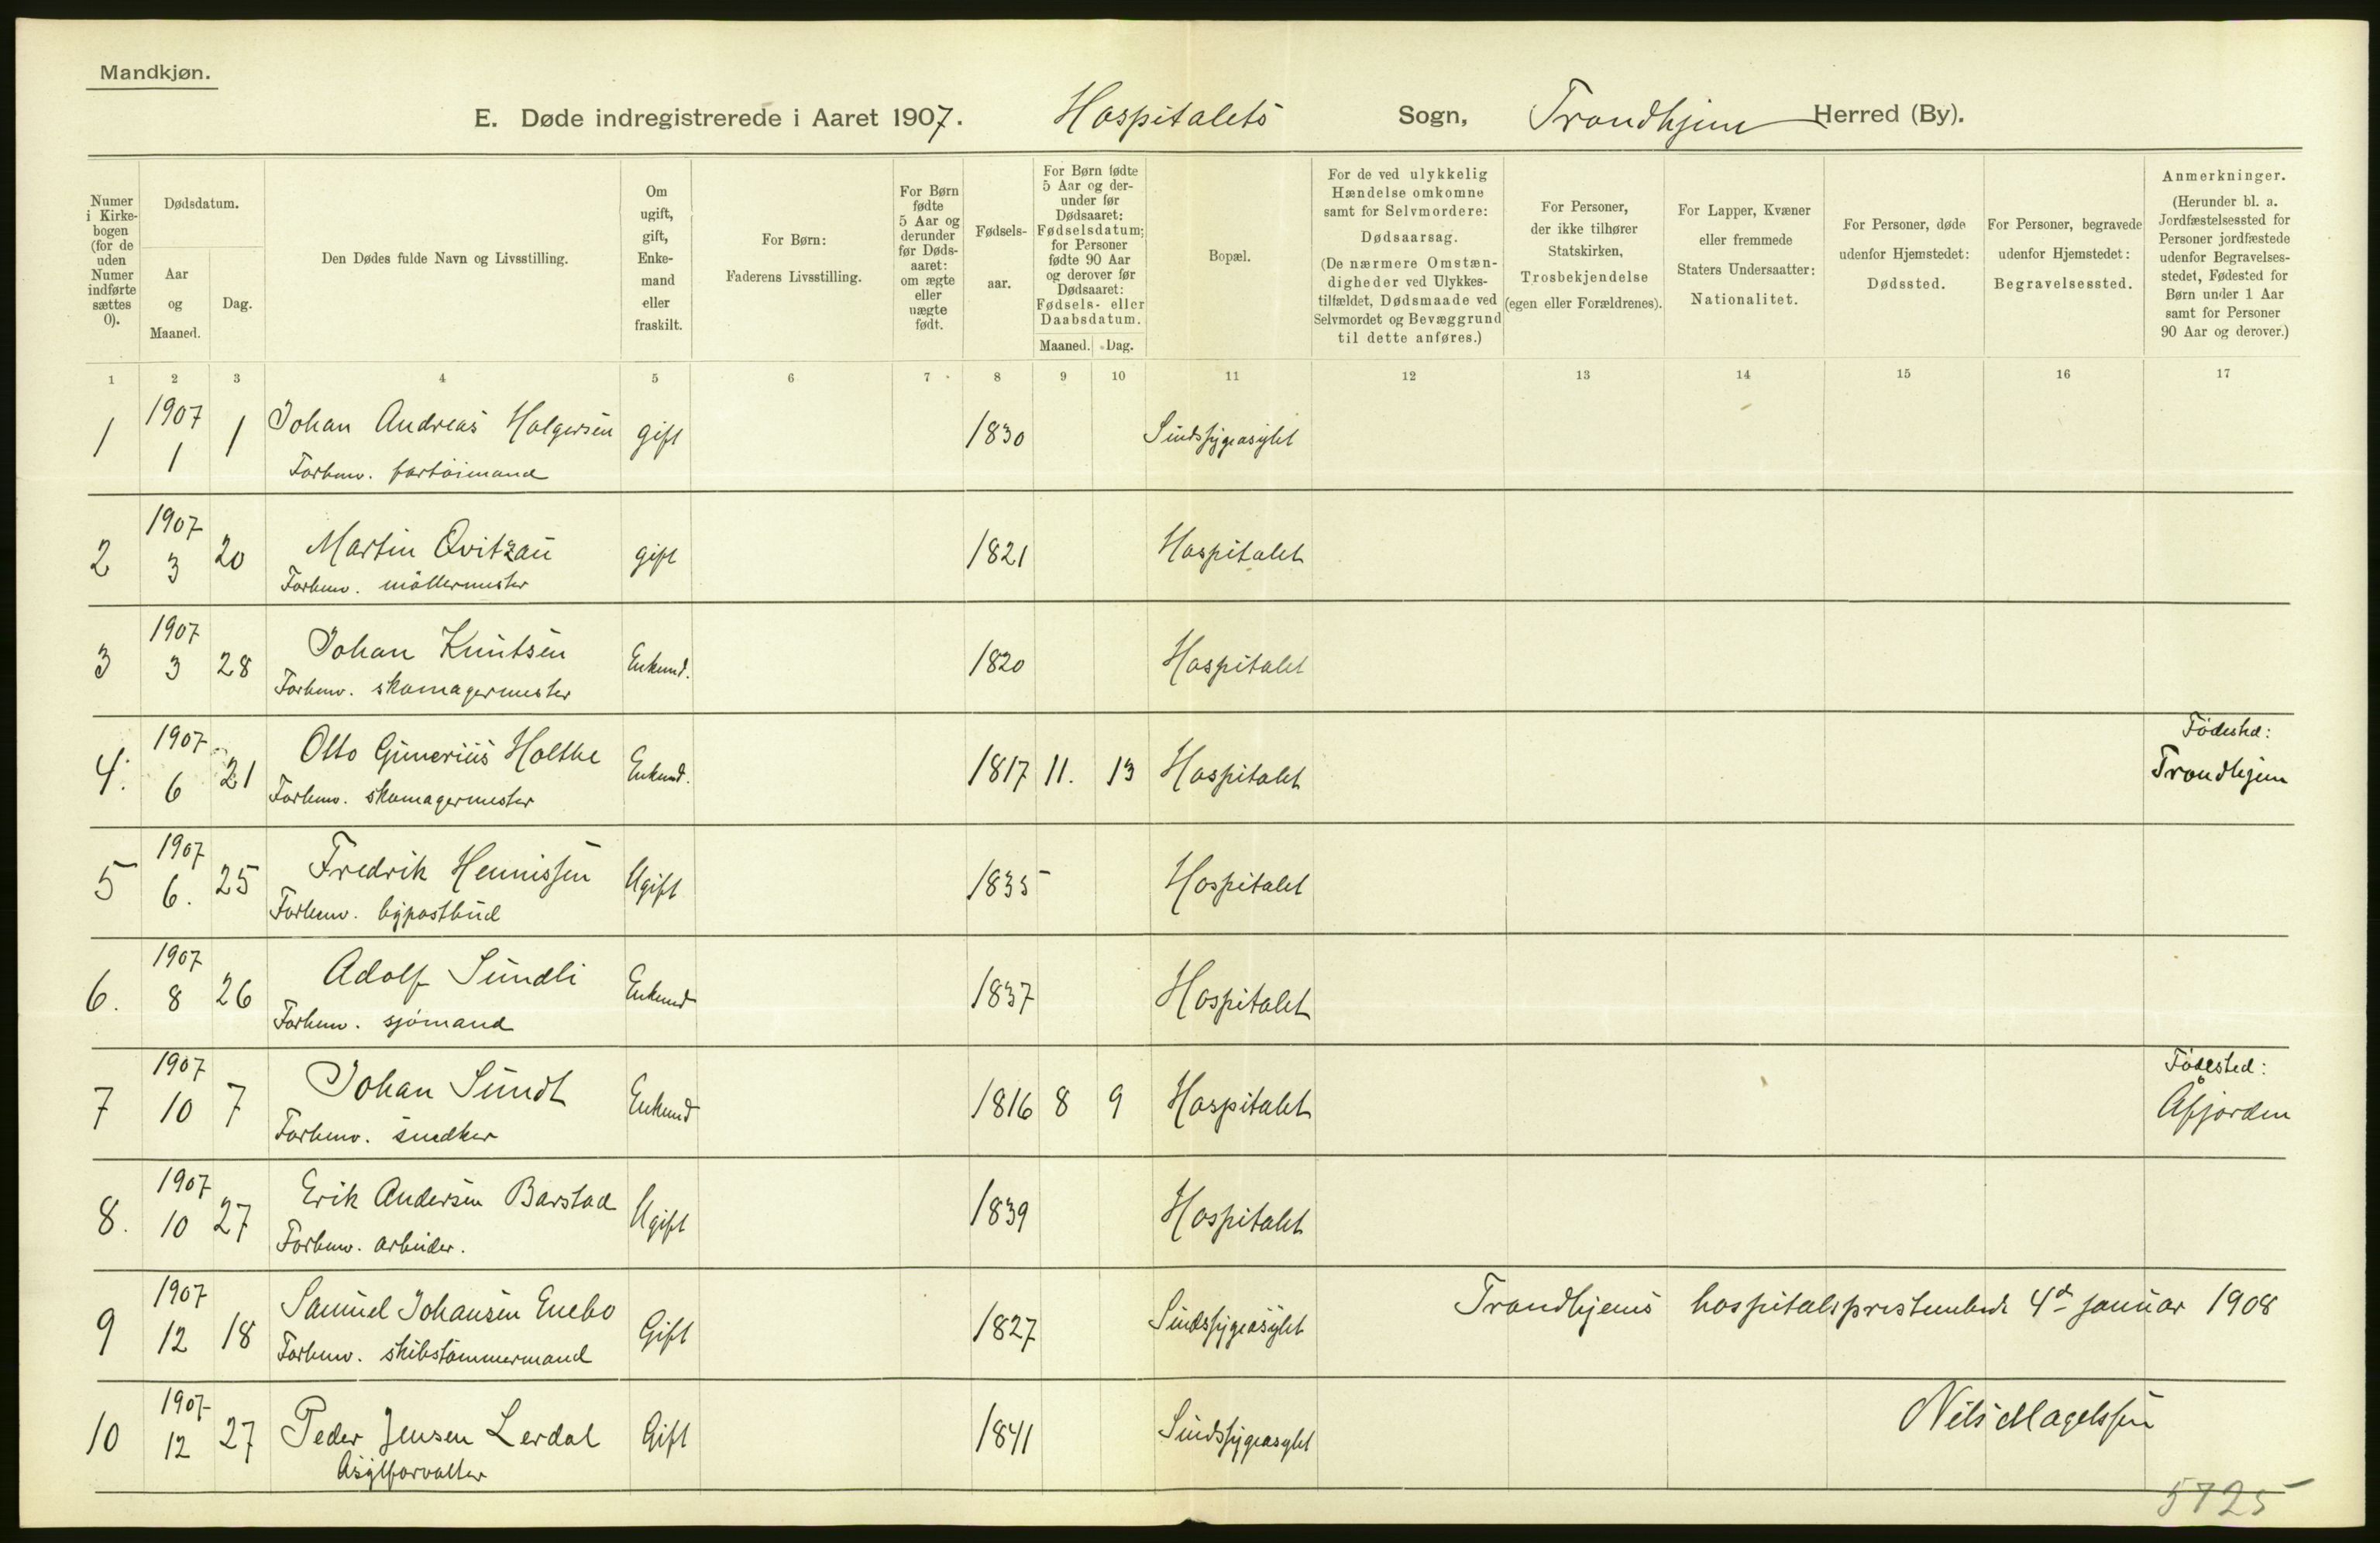 Mandkjøn.
E. Døde indregistrerede i Aaret 1907. Hospitalets Sogn, Trondhjem Herred (By).
Numer i Kirke-bogen (for de uden Numer indførte sættes 0).
Dødsdatum.
Aar og Maaned.
Dag.
Den Dødes fulde Navn og Livsstilling.
Om ugift, gift, Enke-mand eller fraskilt.
For Børn: Faderens Livsstilling.
For Børn fødte 5 Aar og derunder før Døds-aaret: om ægte eller uægte født.
Fødsels-aar.
For Børn fødte 5 Aar og der-under før Dødsaaret: Fødselsdatum; for Personer fødte 90 Aar og derover før Dødsaaret: Fødsels- eller Daabsdatum.
Maaned. Dag.
Bopæl.
For de ved ulykkelig Hændelse omkomne samt for Selvmordere: Dødsaarsag. (De nærmere Omstæn-digheder ved Ulykkes-tilfældet, Dødsmaade ved Selvmordet og Bevæggrund til dette anføres.)
For Personer, der ikke tilhører Statskirken, Trosbekjendelse (egen eller Forældrenes).
For Lapper, Kvæner eller fremmede Staters Undersaatter: Nationalitet.
For Personer, døde udenfor Hjemstedet: Dødssted.
For Personer, begravede udenfor Hjemstedet: Begravelsessted.
Anmerkninger. (Herunder bl. a. Jordfæstelsessted for Personer jordfæstede udenfor Begravelses-stedet, Fødested for Børn under 1 Aar samt for Personer 90 Aar og derover.)
1 2 3 4 5 6 7 8 9 10 11 12 13 14 15 16 17
1 1907 1 1 Johan Andreas Holgersen gift 1830 Sindssygeasylet
Forhenv. fartöimand
2 1907 3 20 Martin Qvitzau gift 1821 Hospitalet
Forhenv. möllermester
3 1907 3 28 Johan Knutsen Enkemd. 1820 Hospitalet
Forhenv. skomagermester
4. 1907 6 21 Otto Gunerius Holthe Enkemd. 1817 11. 13 Hospitalet Födested: Trondhjem
Forhenv. skomagermester
5 1907 6. 25 Fredrik Hennissen Ugift 1835 Hospitalet
Forhenv. bypostbud
6. 1907 8 26 Adolf Sundli Enkemd 1837 Hospitalet
Forhenv. sjömand
7 1907 10 7 Johan Sundt Enkemd 1816 8 9 Hospitalet Födested: Åfjorden
Forhenv. snedker
8. 1907 10 27 Erik Andersen Barstad Ugift 1839 Hospitalet
Forhenv. arbeider.
9 1907 12 18 Samuel Johansen Enebo Gift 1827 Sindssygeasylet
Forhenv. skibstömmermand
Trondhjems hospitalsprestembede 4de januar 1908
10 1907 12 27 Peder Jensen Lerdal Gift 1841 Sindssygeasylet
Asylforvalter
Nils Magelssen
5725